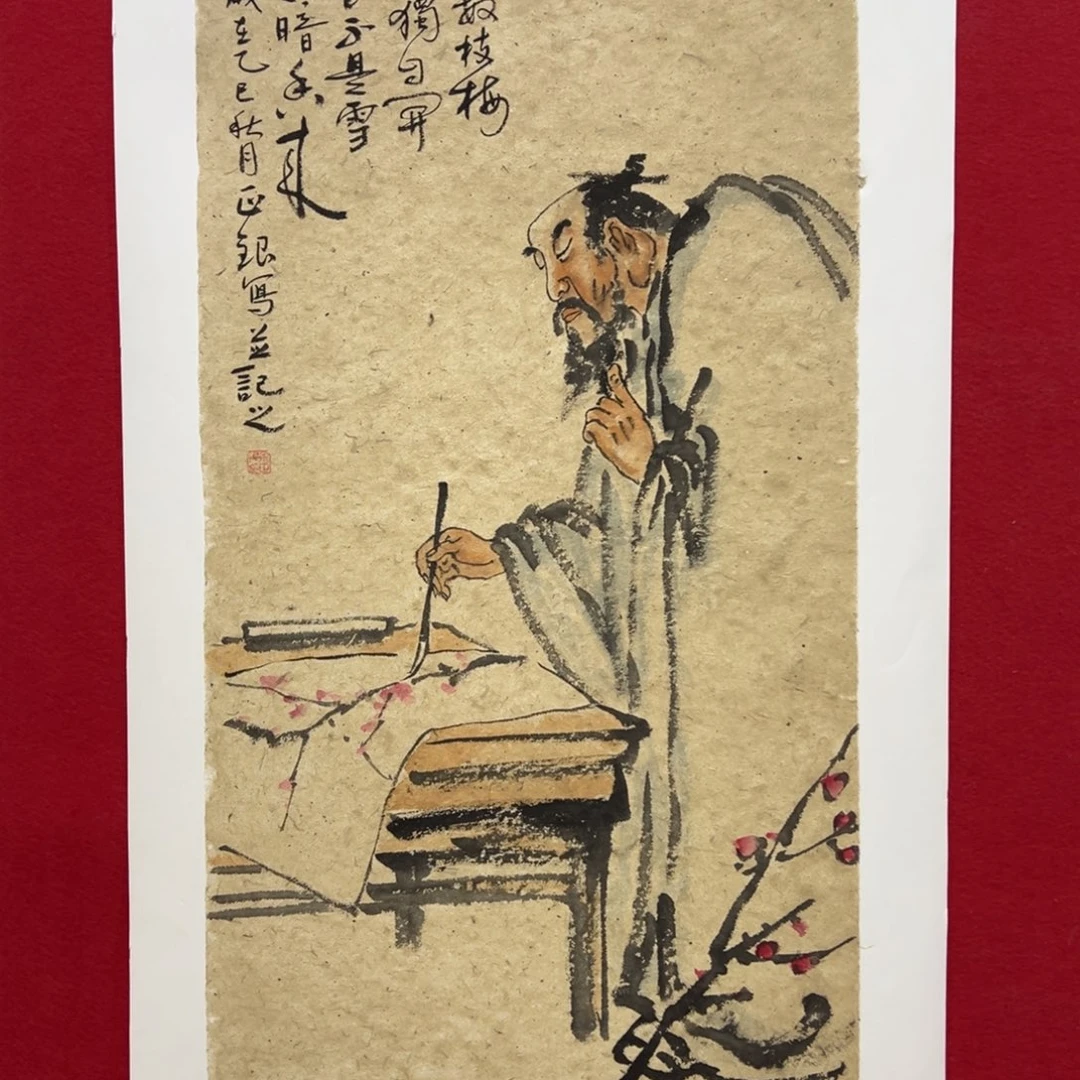 數枝梅
獨自開
不是雪
暗香來
歲在乙巳秋月正銀寫並記之